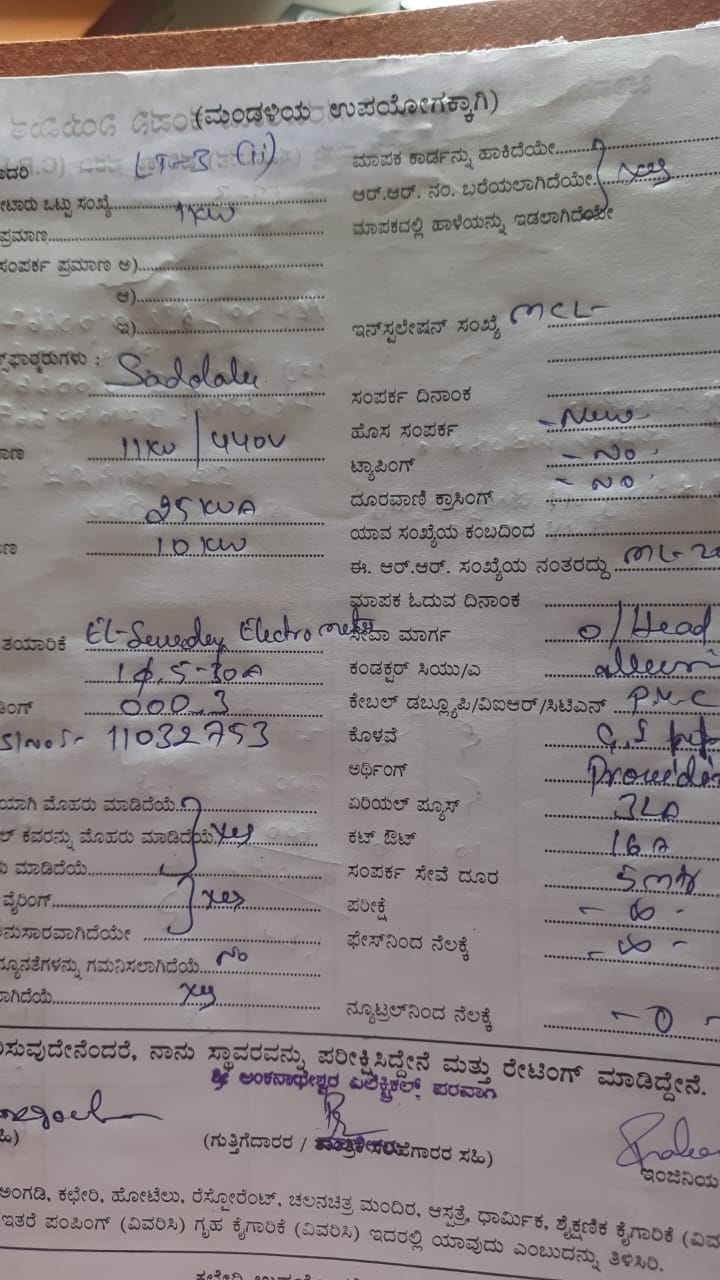 (ಮಂಡಳಿಯ ಉಪಯೋಗಕ್ಕಾಗಿ)
LT-3 (ii)
ಮಾಪಕ ಕಾರ್ಡನ್ನು ಹಾಕಿದೆಯೇ
ಟಾರು ಒಟ್ಟು ಸಂಖ್ಯೆ 1KW
ಆರ್.ಆರ್. ನಂ. ಬರೆಯಲಾಗಿದೆಯೇ Yes
ಪ್ರಮಾಣ
ಮಾಪಕದಲ್ಲಿ ಹಾಳೆಯನ್ನು ಇಡಲಾಗಿದೆಯೇ
ಸಂಪರ್ಕ ಪ್ರಮಾಣ ಅ)
ಆ)
ಇ)
ಇನ್‌ಸ್ಪಲೇಷನ್ ಸಂಖ್ಯೆ MCL-
ಫಾರ್‍ಮರುಗಳು :
ಸಂಪರ್ಕ ದಿನಾಂಕ
ಹೊಸ ಸಂಪರ್ಕ - New
11KV / 440V
ಟ್ಯಾಪಿಂಗ್ - No
25 KVA
ದೂರವಾಣಿ ಕ್ರಾಸಿಂಗ್ - No
10 KW
ಯಾವ ಸಂಖ್ಯೆಯ ಕಂಬದಿಂದ
ಈ. ಆರ್.ಆರ್. ಸಂಖ್ಯೆಯ ನಂತರದ್ದು
ಮಾಪಕ ಓದುವ ದಿನಾಂಕ
ತಯಾರಿಕೆ Electrometer
ಸೇವಾ ಮಾರ್ಗ O/Head
1φ, 5-30A
ಕಂಡಕ್ಟರ್ ಸಿಯು/ಎ
000.3
ಕೇಬಲ್ ಡಬ್ಲ್ಯೂಪಿ/ವಿಐಆರ್/ಸಿಟಿಎಸ್
Sl No:- 11032753
ಕೊಳವೆ G.I pipe
ಅರ್ಥಿಂಗ್
ಯಾಗಿ ಮೊಹರು ಮಾಡಿದೆಯೆ
ಏರಿಯಲ್ ಪ್ಯೂಸ್
ಲ್ ಕವರನ್ನು ಮೊಹರು ಮಾಡಿದೆಯೆ Yes
ಕಟ್ ಔಟ್ 16A
ಮಾಡಿದೆಯೆ
ಸಂಪರ್ಕ ಸೇವೆ ದೂರ 5 mtr
ವೈರಿಂಗ್ Yes
ಪರೀಕ್ಷೆ - ∞ -
ನುಸಾರವಾಗಿದೆಯೇ
ಫೇಸ್‌ನಿಂದ ನೆಲಕ್ಕೆ - ∞ -
ನ್ಯೂನತೆಗಳನ್ನು ಗಮನಿಸಲಾಗಿದೆಯೆ No
ಲಾಗಿದೆಯೆ Yes
ನ್ಯೂಟ್ರಲ್‌ನಿಂದ ನೆಲಕ್ಕೆ - 0 -
ಸುವುದೇನೆಂದರೆ, ನಾನು ಸ್ಥಾವರವನ್ನು ಪರೀಕ್ಷಿಸಿದ್ದೇನೆ ಮತ್ತು ರೇಟಿಂಗ್ ಮಾಡಿದ್ದೇನೆ.
ಶ್ರೀ ಅಂಕನಾಥೇಶ್ವರ ಎಲೆಕ್ಟ್ರಿಕಲ್ಸ್ ಪರವಾಗಿ
(ಗುತ್ತಿಗೆದಾರರ / ಸಹಿ)
ಇಂಜಿನಿಯ
ಅಂಗಡಿ, ಕಛೇರಿ, ಹೋಟೆಲು, ರೆಸ್ಟೋರೆಂಟ್, ಚಲನಚಿತ್ರ ಮಂದಿರ, ಆಸ್ಪತ್ರೆ, ಧಾರ್ಮಿಕ, ಶೈಕ್ಷಣಿಕ ಕೈಗಾರಿಕೆ (ವಿವ
ಇತರೆ ಪಂಪಿಂಗ್ (ವಿವರಿಸಿ) ಗೃಹ ಕೈಗಾರಿಕೆ (ವಿವರಿಸಿ) ಇದರಲ್ಲಿ ಯಾವುದು ಎಂಬುದನ್ನು ತಿಳಿಸಿರಿ.